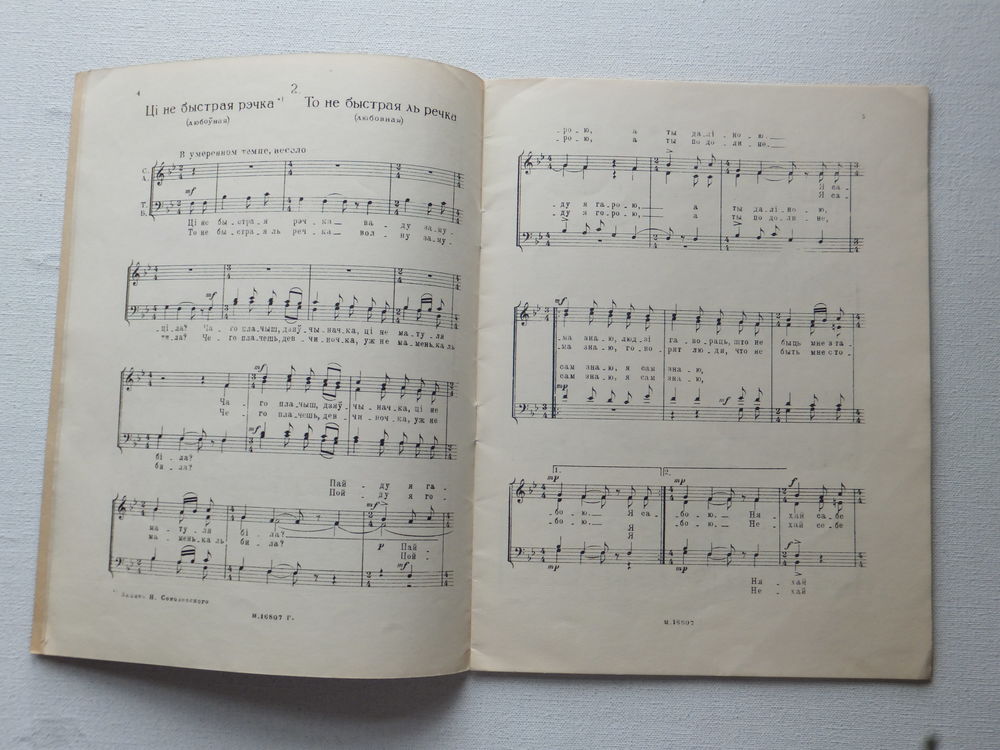 4
2.
Ці не быстрая рэчка *) То не быстрая ль речка
(любоўная) (любовная)
В умеренном темпе, весело
С.
А.
mf
Т.
Б.
Ці не бы_стра_я рэч_ка_ ва_ду заму_
То не бы_стра_я ль реч_ка_ вол_ну заму_
mf
_ці_ла? Ча_го пла_чыш, дзяў_чы_нач_ка, ці не ма_ту_ля
_ти_ла? Че_го пла_чешь, дев_чи_ноч_ка, уж не ма_мень_ка ль
mf
Ча_го пла_чыш, дзяў_чы_нач_ка, ці не
Че_го пла_чешь, дев_чи_ноч_ка, уж не
mf
бі_ла?
би_ла?
Пай_ду я га_
Пой_ду я го_
mf
ма_ту_ля бі_ла?
ма_мень_ка ль би_ла?
p Пай_
Пой_
mf
*) Запись Н. Соколовского
М.16807 Г.
5
_ро_ю, а ты да_лі_но_ю._
_ро_ю, а ты по до_ли_не._
Я са_
ду я га_ро_ю,_ а ты да_лі_но_ю,
ду я го_ро_ю,_ а ты по до_ли_не,
mf
_ма зна_ю, люд_зі га_во_раць, што не быць мне з та_
_ма зна_ю, го_во_рят лю_ди, что не быть мне с то_
сам зна_ю, я сам зна_ю,
сам зна_ю, я сам зна_ю,
mp mf
1. 2.
mp mp f
_бо_ю._ Я са_ _бо_ю._ Ня_хай сабе
_бо_ю._ Я _бо_ю._ Не_хай себе
Я
mp mp f
Ня_хай
Не_хай
М.16807